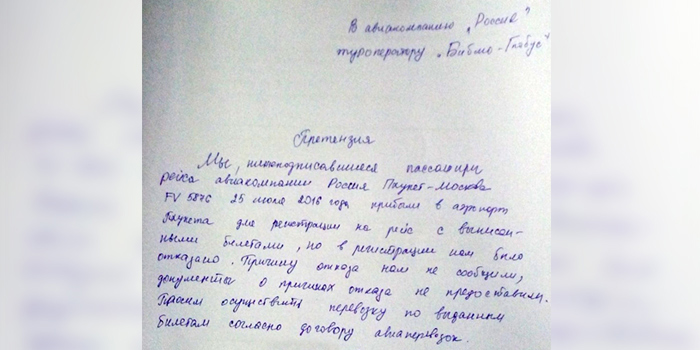 В авиакомпанию "Россия"
туроператору "Библио-Глобус"
Претензия
Мы, нижеподписавшиеся пассажиры
рейса авиакомпании Россия Пхукет-Москва
FV 5876 25 июля 2016 года прибыли в аэропорт
Пхукета для регистрации на рейс с выписан-
ными билетами, но в регистрации нам было
отказано. Причину отказа нам не сообщили,
документы о причинах отказа не предоставили.
Просим осуществить перевозку по выданным
билетам согласно договору авиаперевозок.